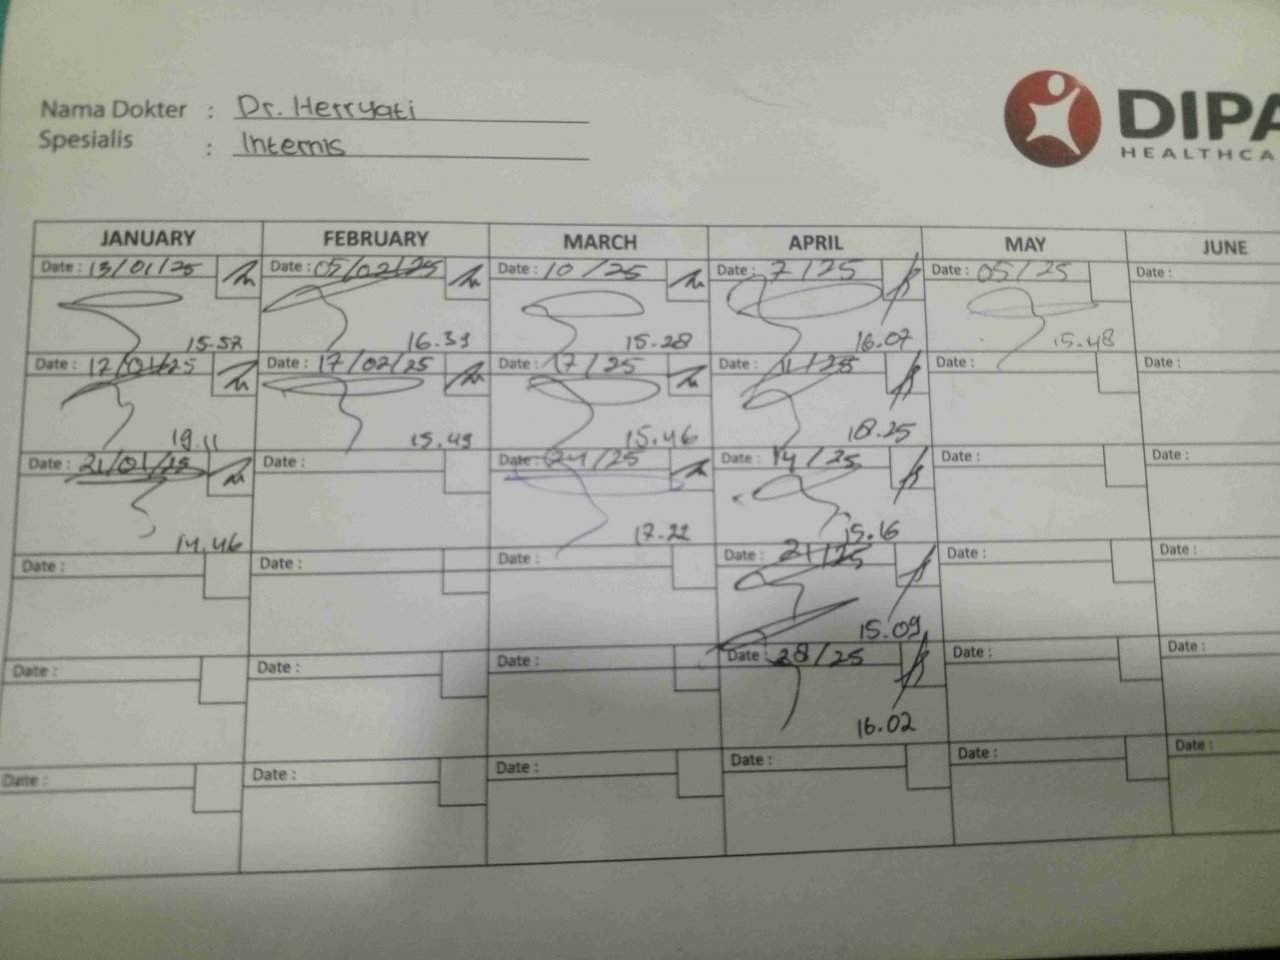 Nama Dokter : Dr. Herryati
Spesialis : Internis
DIPA
HEALTHCA
JANUARY FEBRUARY MARCH APRIL MAY JUNE
Date : 13/01/25 Date : 05/02/25 Date : 10/25 Date : 7/25 Date : 05/25 Date :
15.57 16.39 15.28 16.07 15.48
Date : 17/01/25 Date : 17/02/25 Date : 17/25 Date : 11/25 Date : Date :
19.11 15.49 15.46 18.25
Date : 21/01/25 Date : Date : 24/25 Date : 14/25 Date : Date :
14.46 17.22 15.16
Date : Date : Date : Date : 21/25 Date : Date :
15.09
Date : Date : Date : Date : 28/25 Date : Date :
16.02
Date : Date : Date : Date : Date : Date :